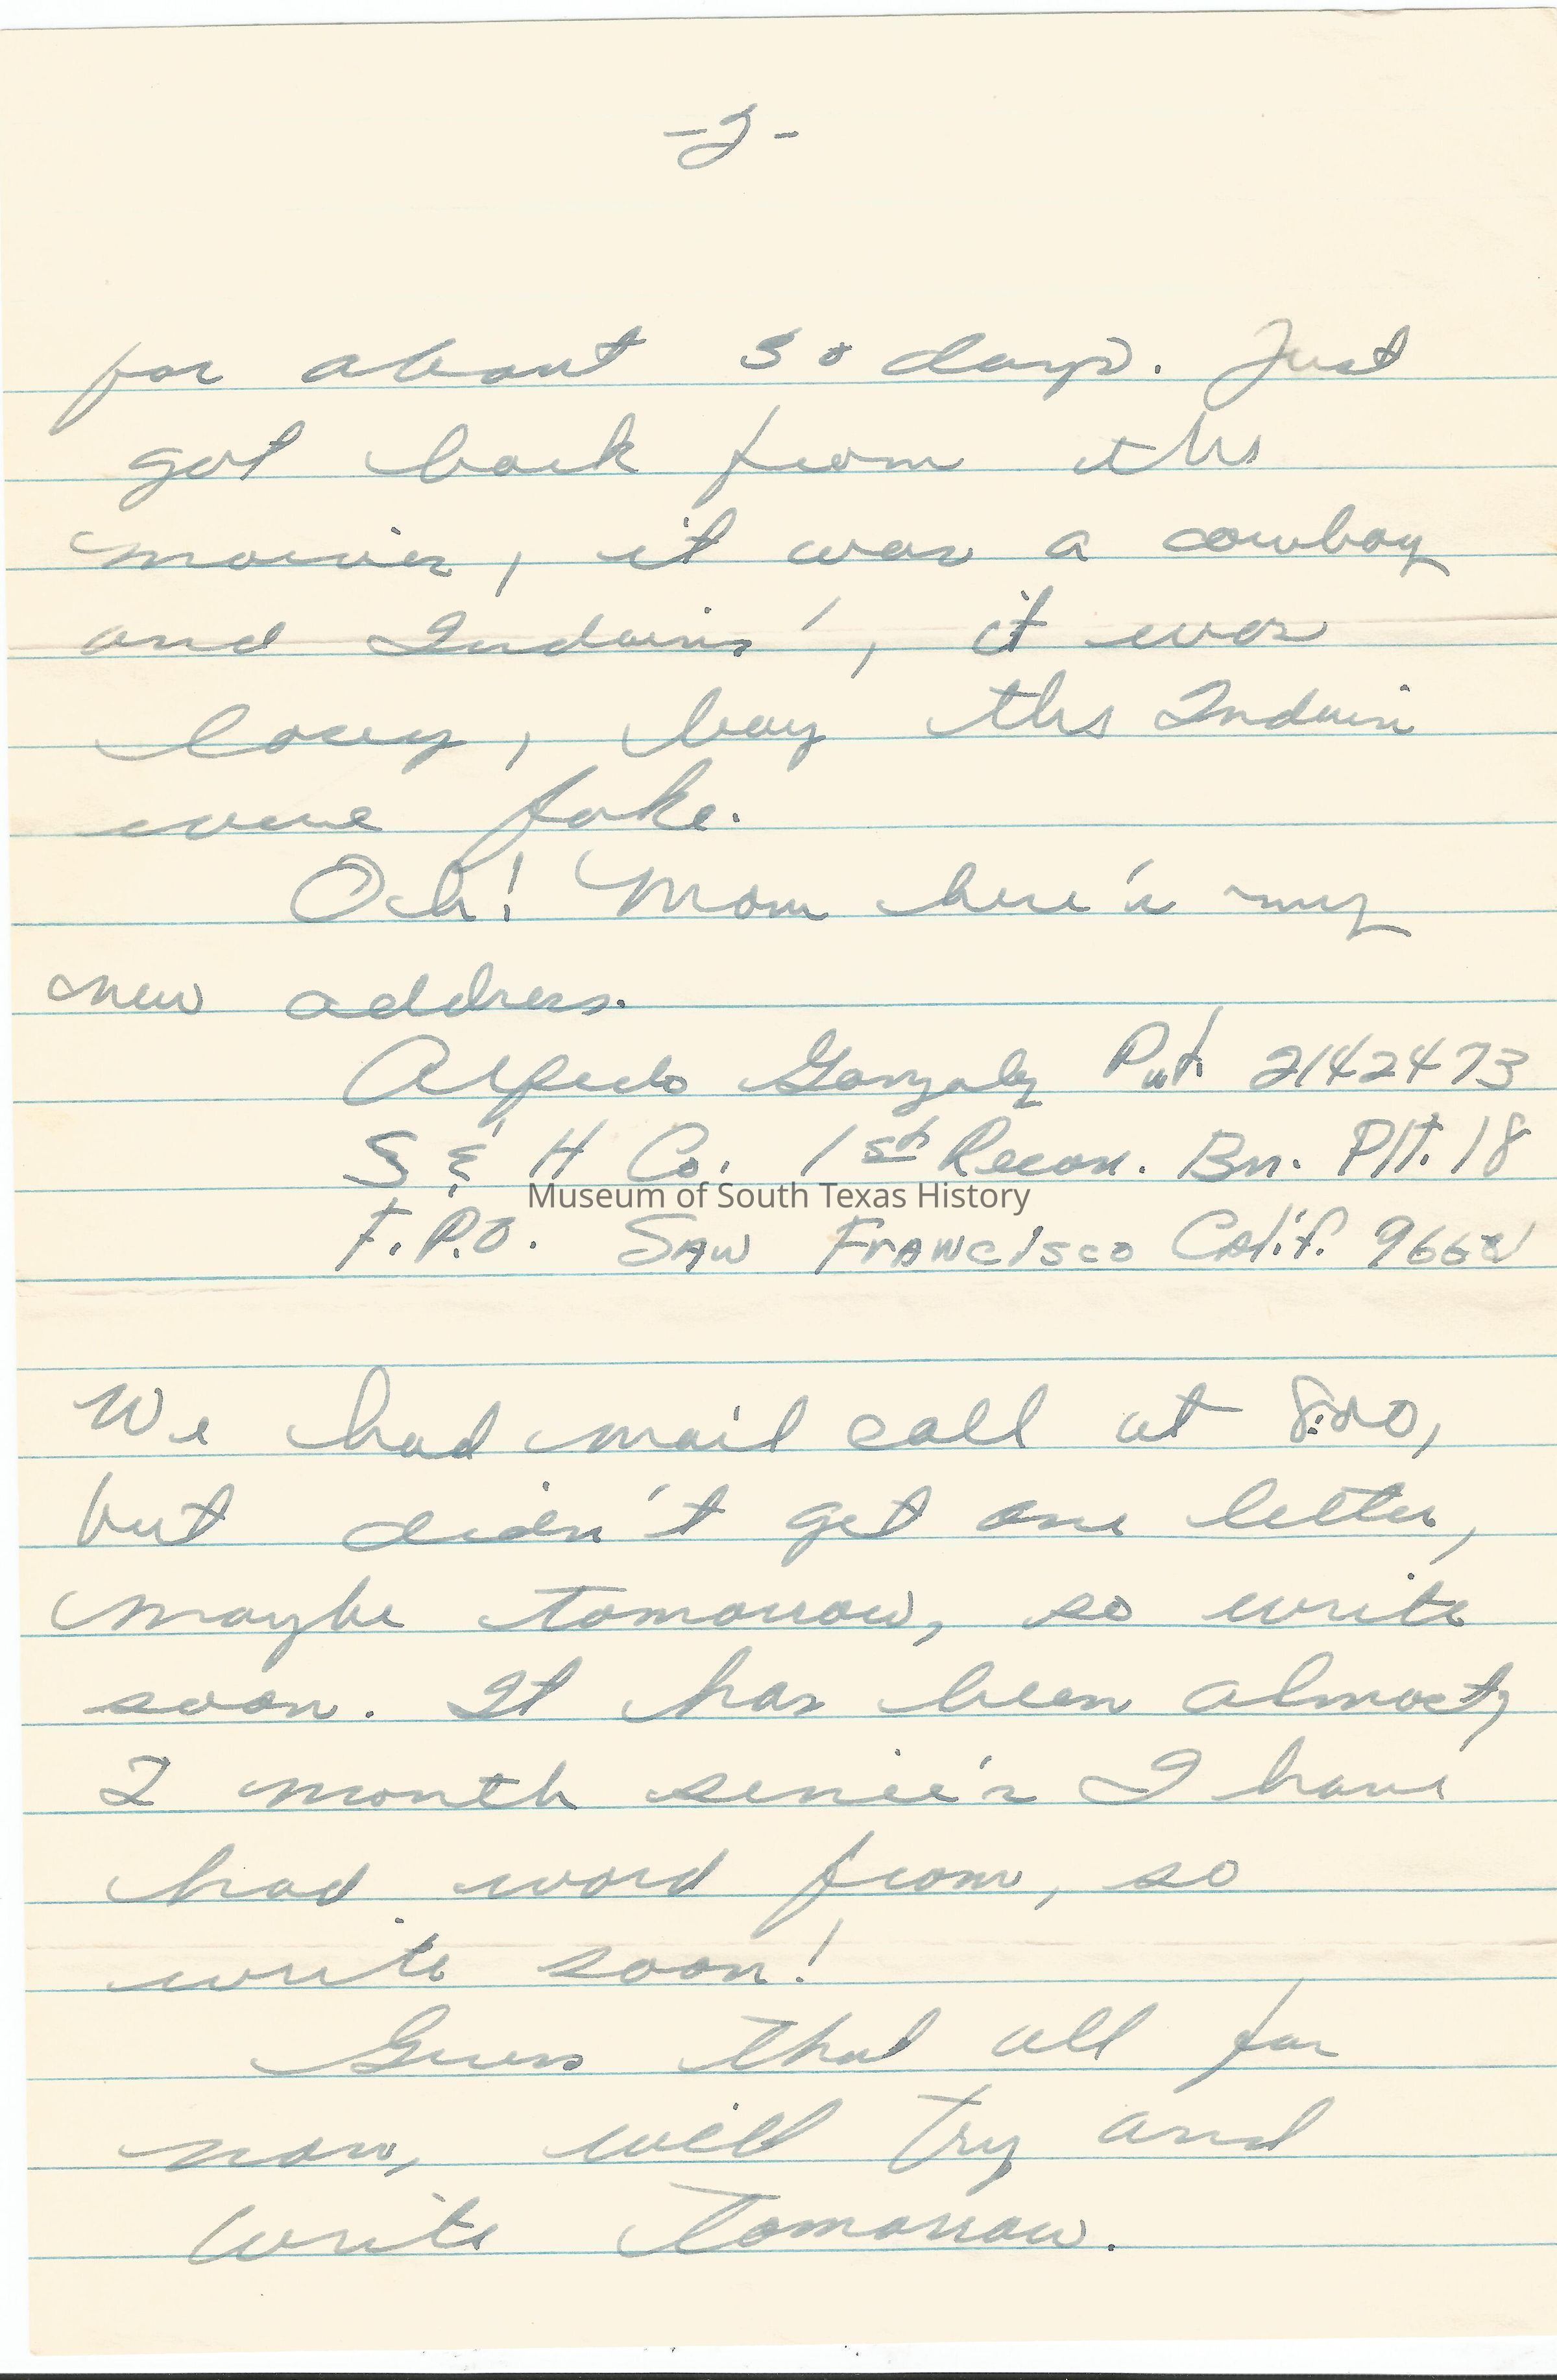 -2-
for about 30 days. Just
got back from the
movies, it was a cowboy
and Indains', it was
lousy, boy the Indain
were fake.
Och! Mom here's my
new address.
Alfredo Gonzalez Pvt. 2142473
S & H Co. 1st Recon. Bn. Plt. 18
Museum of South Texas History
F.P.O. San Francisco Calif.
We had mail call at 8:00,
but didn't get one letter,
maybe tomorrow, so write
soon. It has been almost,
2 month since's I have
had word from, so
write soon!
Guess that all for
now, will try and
write tomorrow.